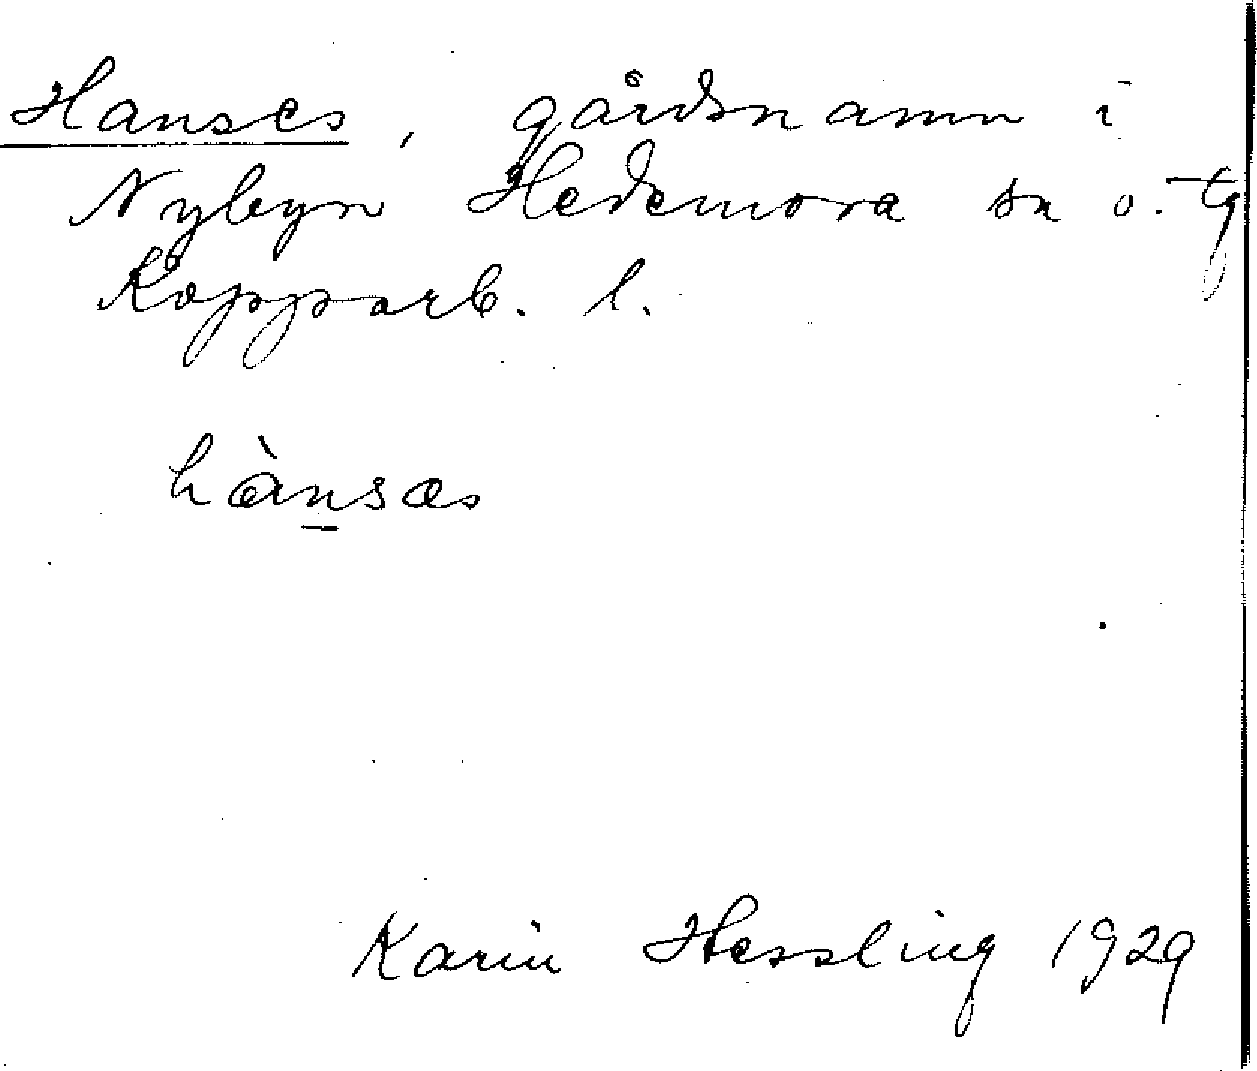 Hanses, gårdsnamn i
Nybyn Hedemora sn o. tg
Kopparb. l.
hànsæs
Karin Hessling 1929